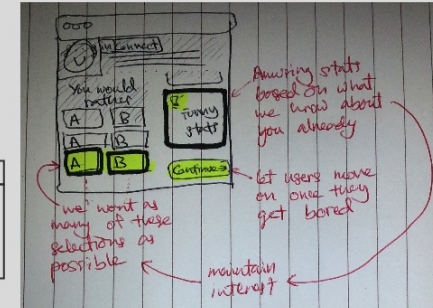 Connect
You would
rather
A B
A B
A B
Funny
stats
Continue →
Amusing stats
based on what
we know about
you already
let users move
on once they
get bored
we want as
many of these
selections as
possible
maintain
interest